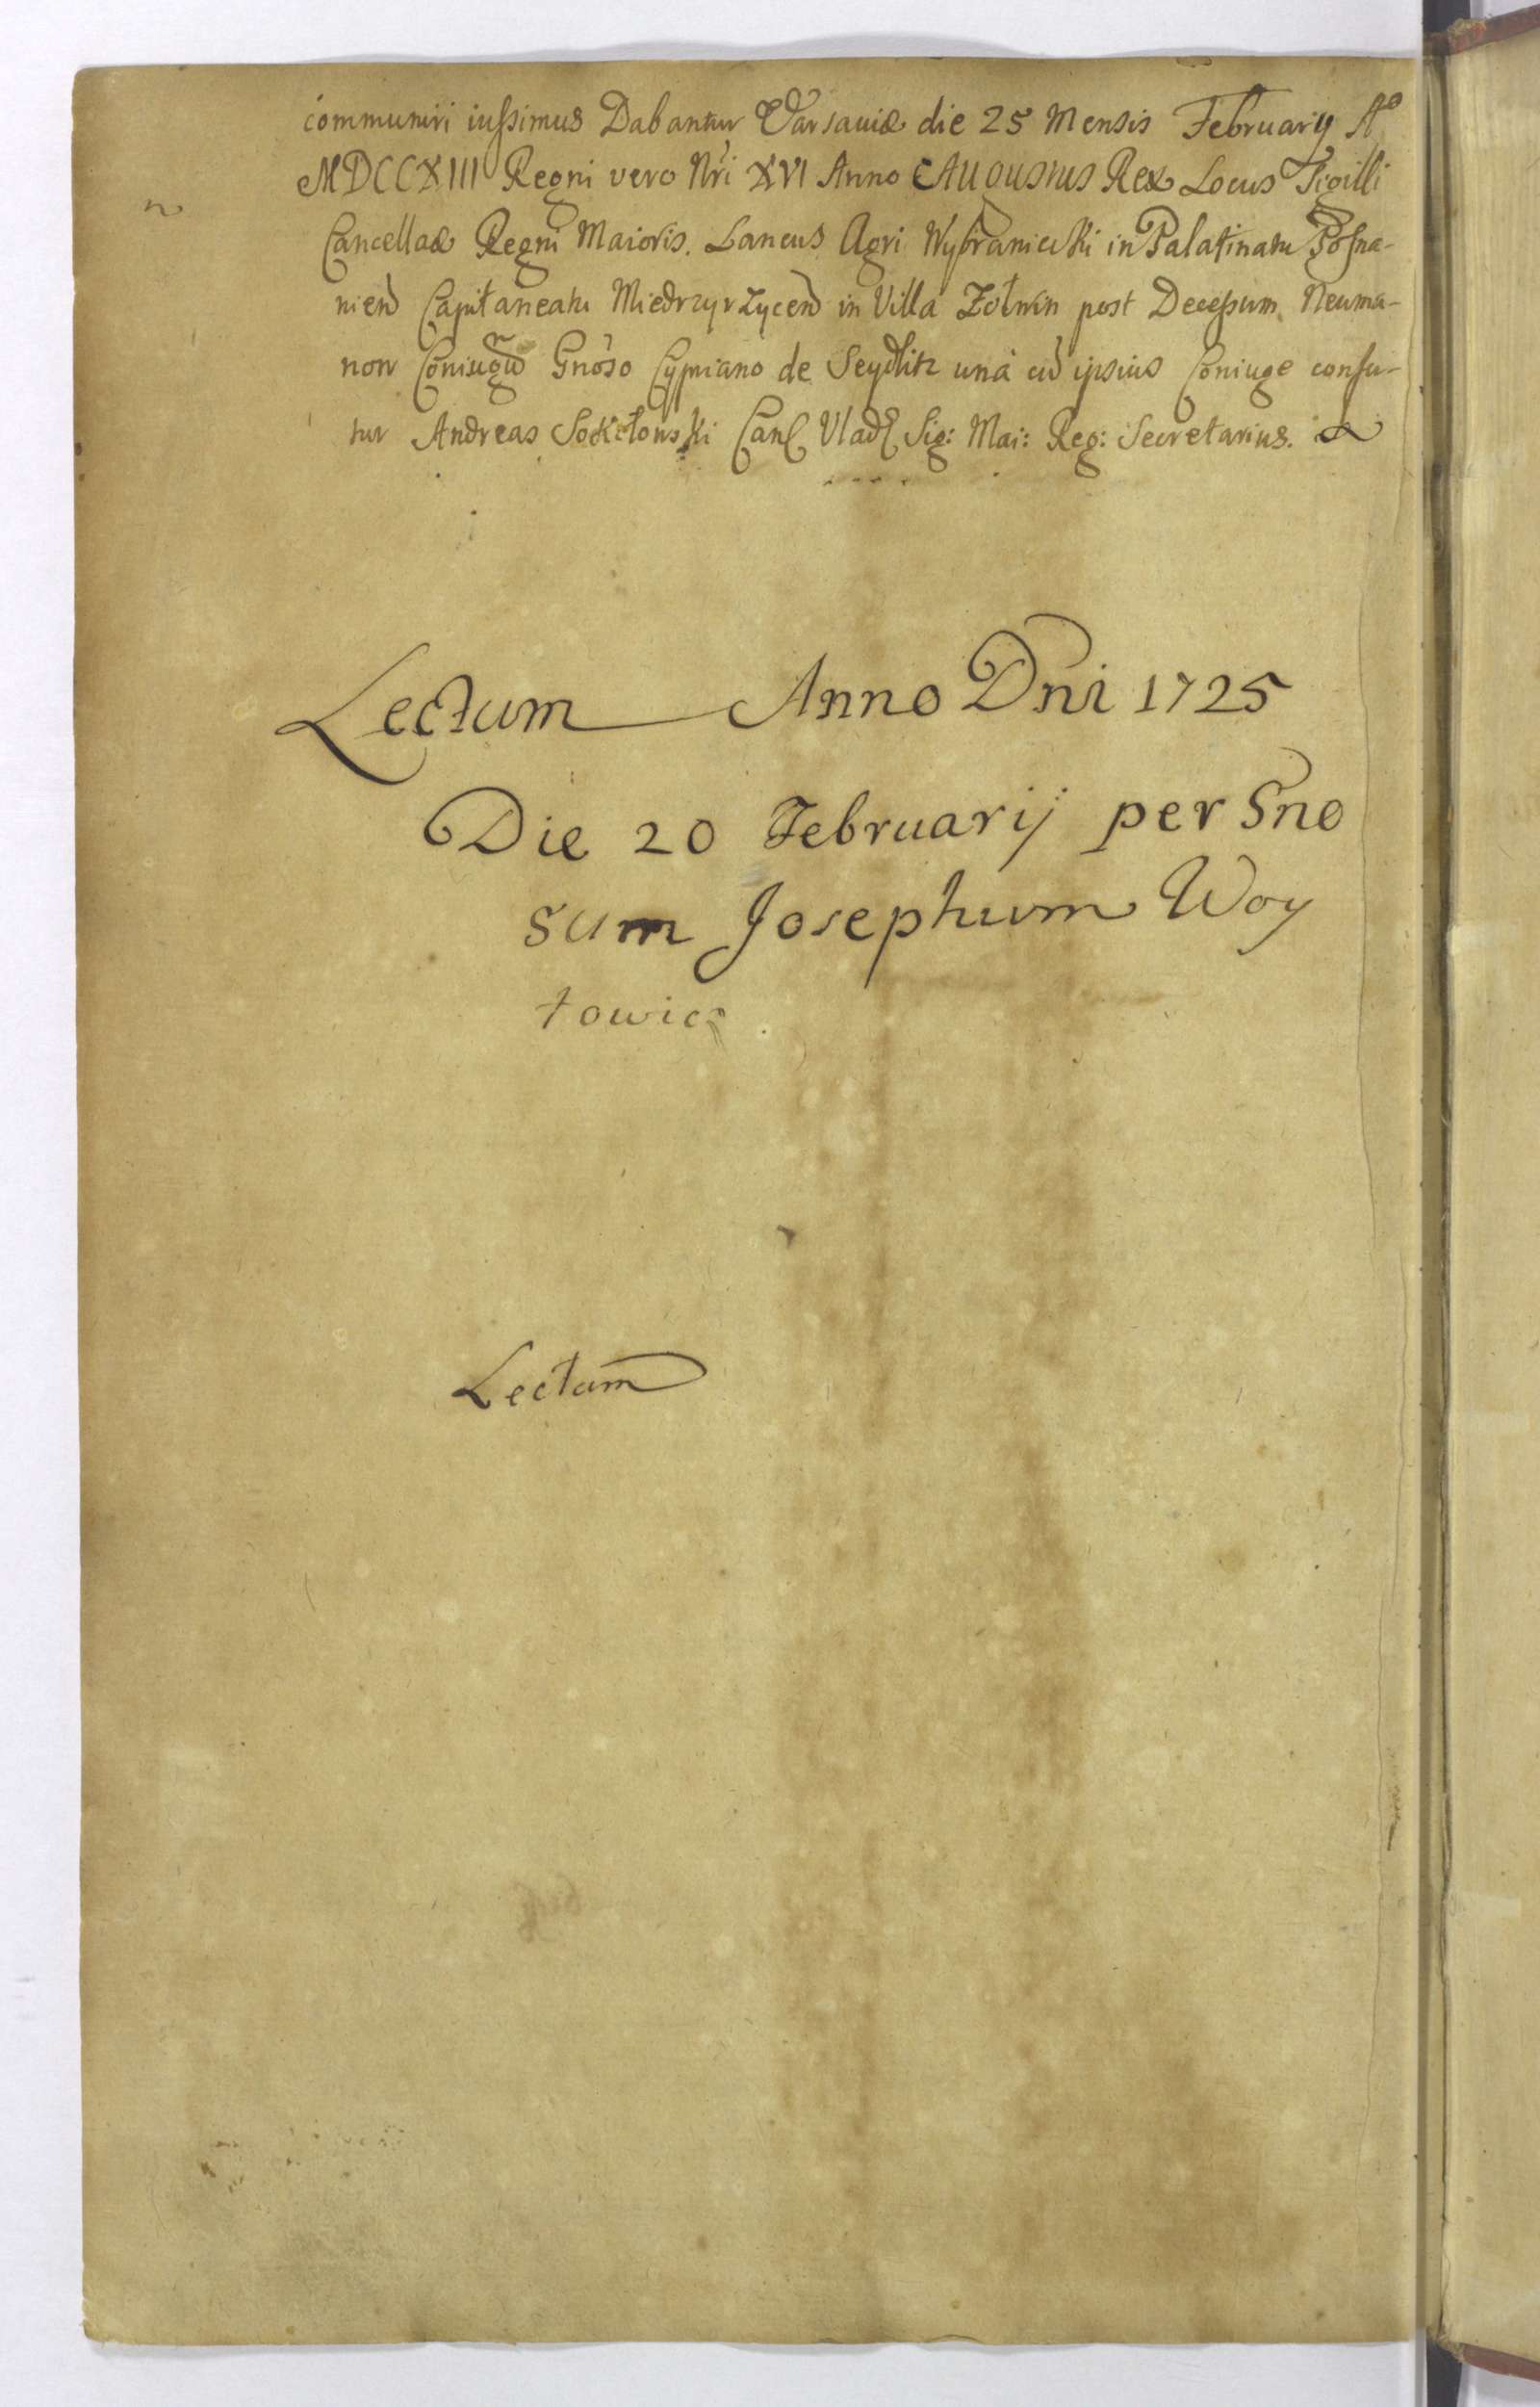 communiri iussimus Dabantur Varsaviæ die 25 Mensis February Aº
MDCCXIII Regni vero Nri XVI Anno Augustus Rex Locus Sigilli
Cancellae Regni Maioris. Laneus Agri Wybraniecki in Palatinatu Posna-
nien Capitaneatu Miedrzyrzycen in Villa Zołwin post Decessum Neuma-
now Coniugu Gnoso Cypriano de Seydlitz una cu ipsius Coniuge confu-
tur Andreas Sokołowski Sig: Mai: Reg: Secretarius.
Lectum Anno Dni 1725
Die 20 Februarij per Gno
sum Josephum Woy
towicz
Lectum